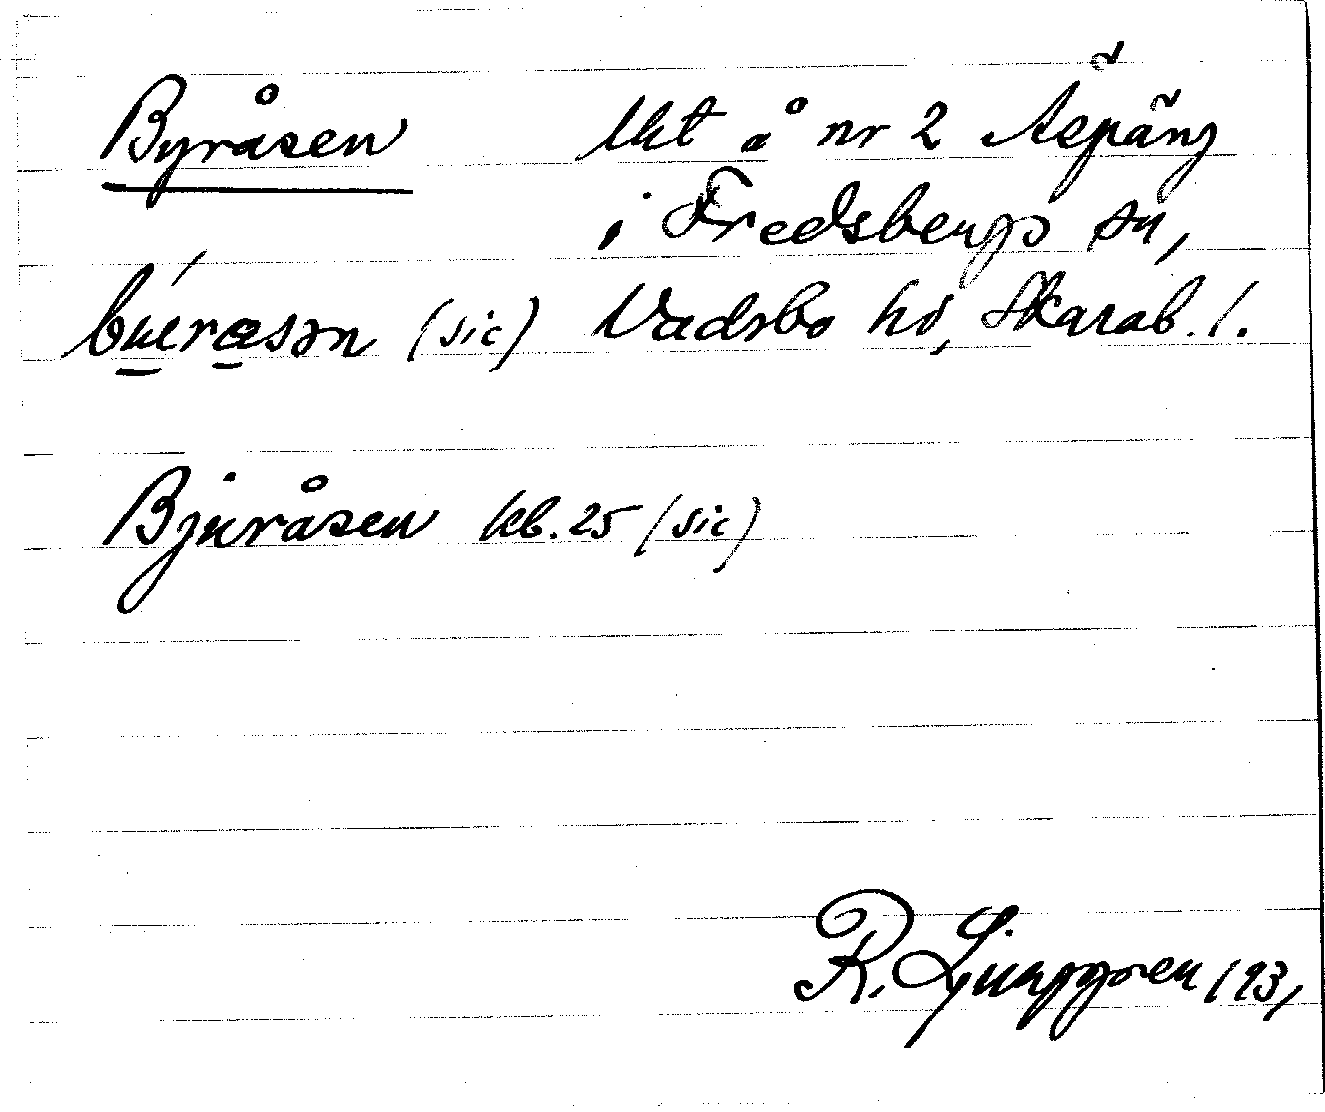 Byråsen lht å nr 2 Äspäng
i Fredsbergs sn,
(sic) Vadsbo hd, Skarab. l.
Bjuråsen kb. 25 (sic)
R. Ljunggren 1931